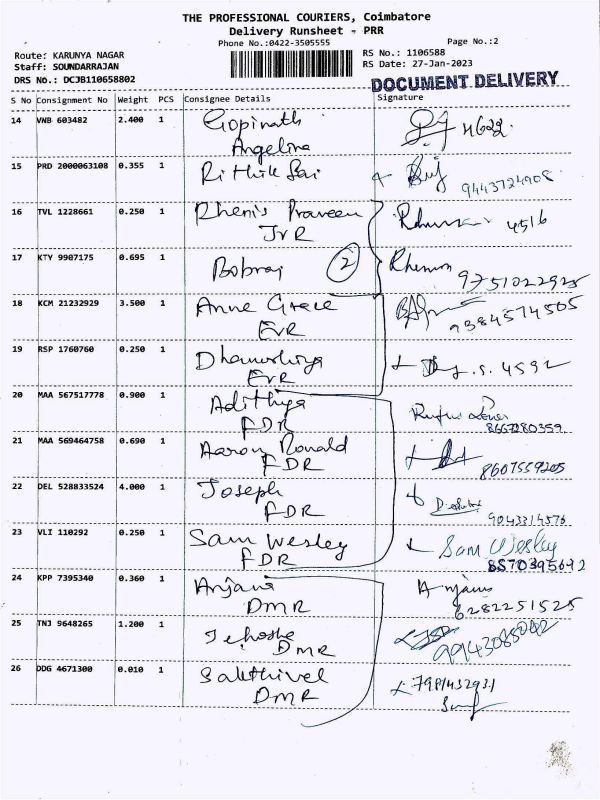 THE PROFESSIONAL COURIERS, Coimbatore
Delivery Runsheet - PRR
Phone No.:0422-3505555
Page No.:2
Route: KARUNYA NAGAR
RS No.: 1106588
Staff: SOUNDARRAJAN
RS Date: 27-Jan-2023
DRS No.: DCJB110658802
DOCUMENT DELIVERY
S No Consignment No Weight PCS Consignee Details Signature
14 VNB 603482 2.400 1 Gopinath 4622
Angelina
15 PRD 2000063108 0.355 1 Rithik Sai
9443724908
16 TVL 1228661 0.250 1 Rhenis Praveen 4516
JVR
17 KTY 9907175 0.695 1 Bobraj 2
9751022925
18 KCM 21232929 3.500 1 Anne Grace
EVR 9384574505
19 RSP 1760760 0.250 1 4592
EVR
20 MAA 567517778 0.900 1 Adithya
FDR
21 MAA 569464758 0.690 1 Aaron Ronald
FDR 8607559205
22 DEL 528833524 4.000 1 Joseph
FDR 9043314576
23 VLI 110292 0.250 1 Sam Wesley Sam Wesley
FDR
24 KPP 7395340 0.360 1 Anjana
DMR 6282251525
25 TNJ 9648265 1.200 1
DMR
26 DDG 4671300 0.010 1 Sakthivel
DMR